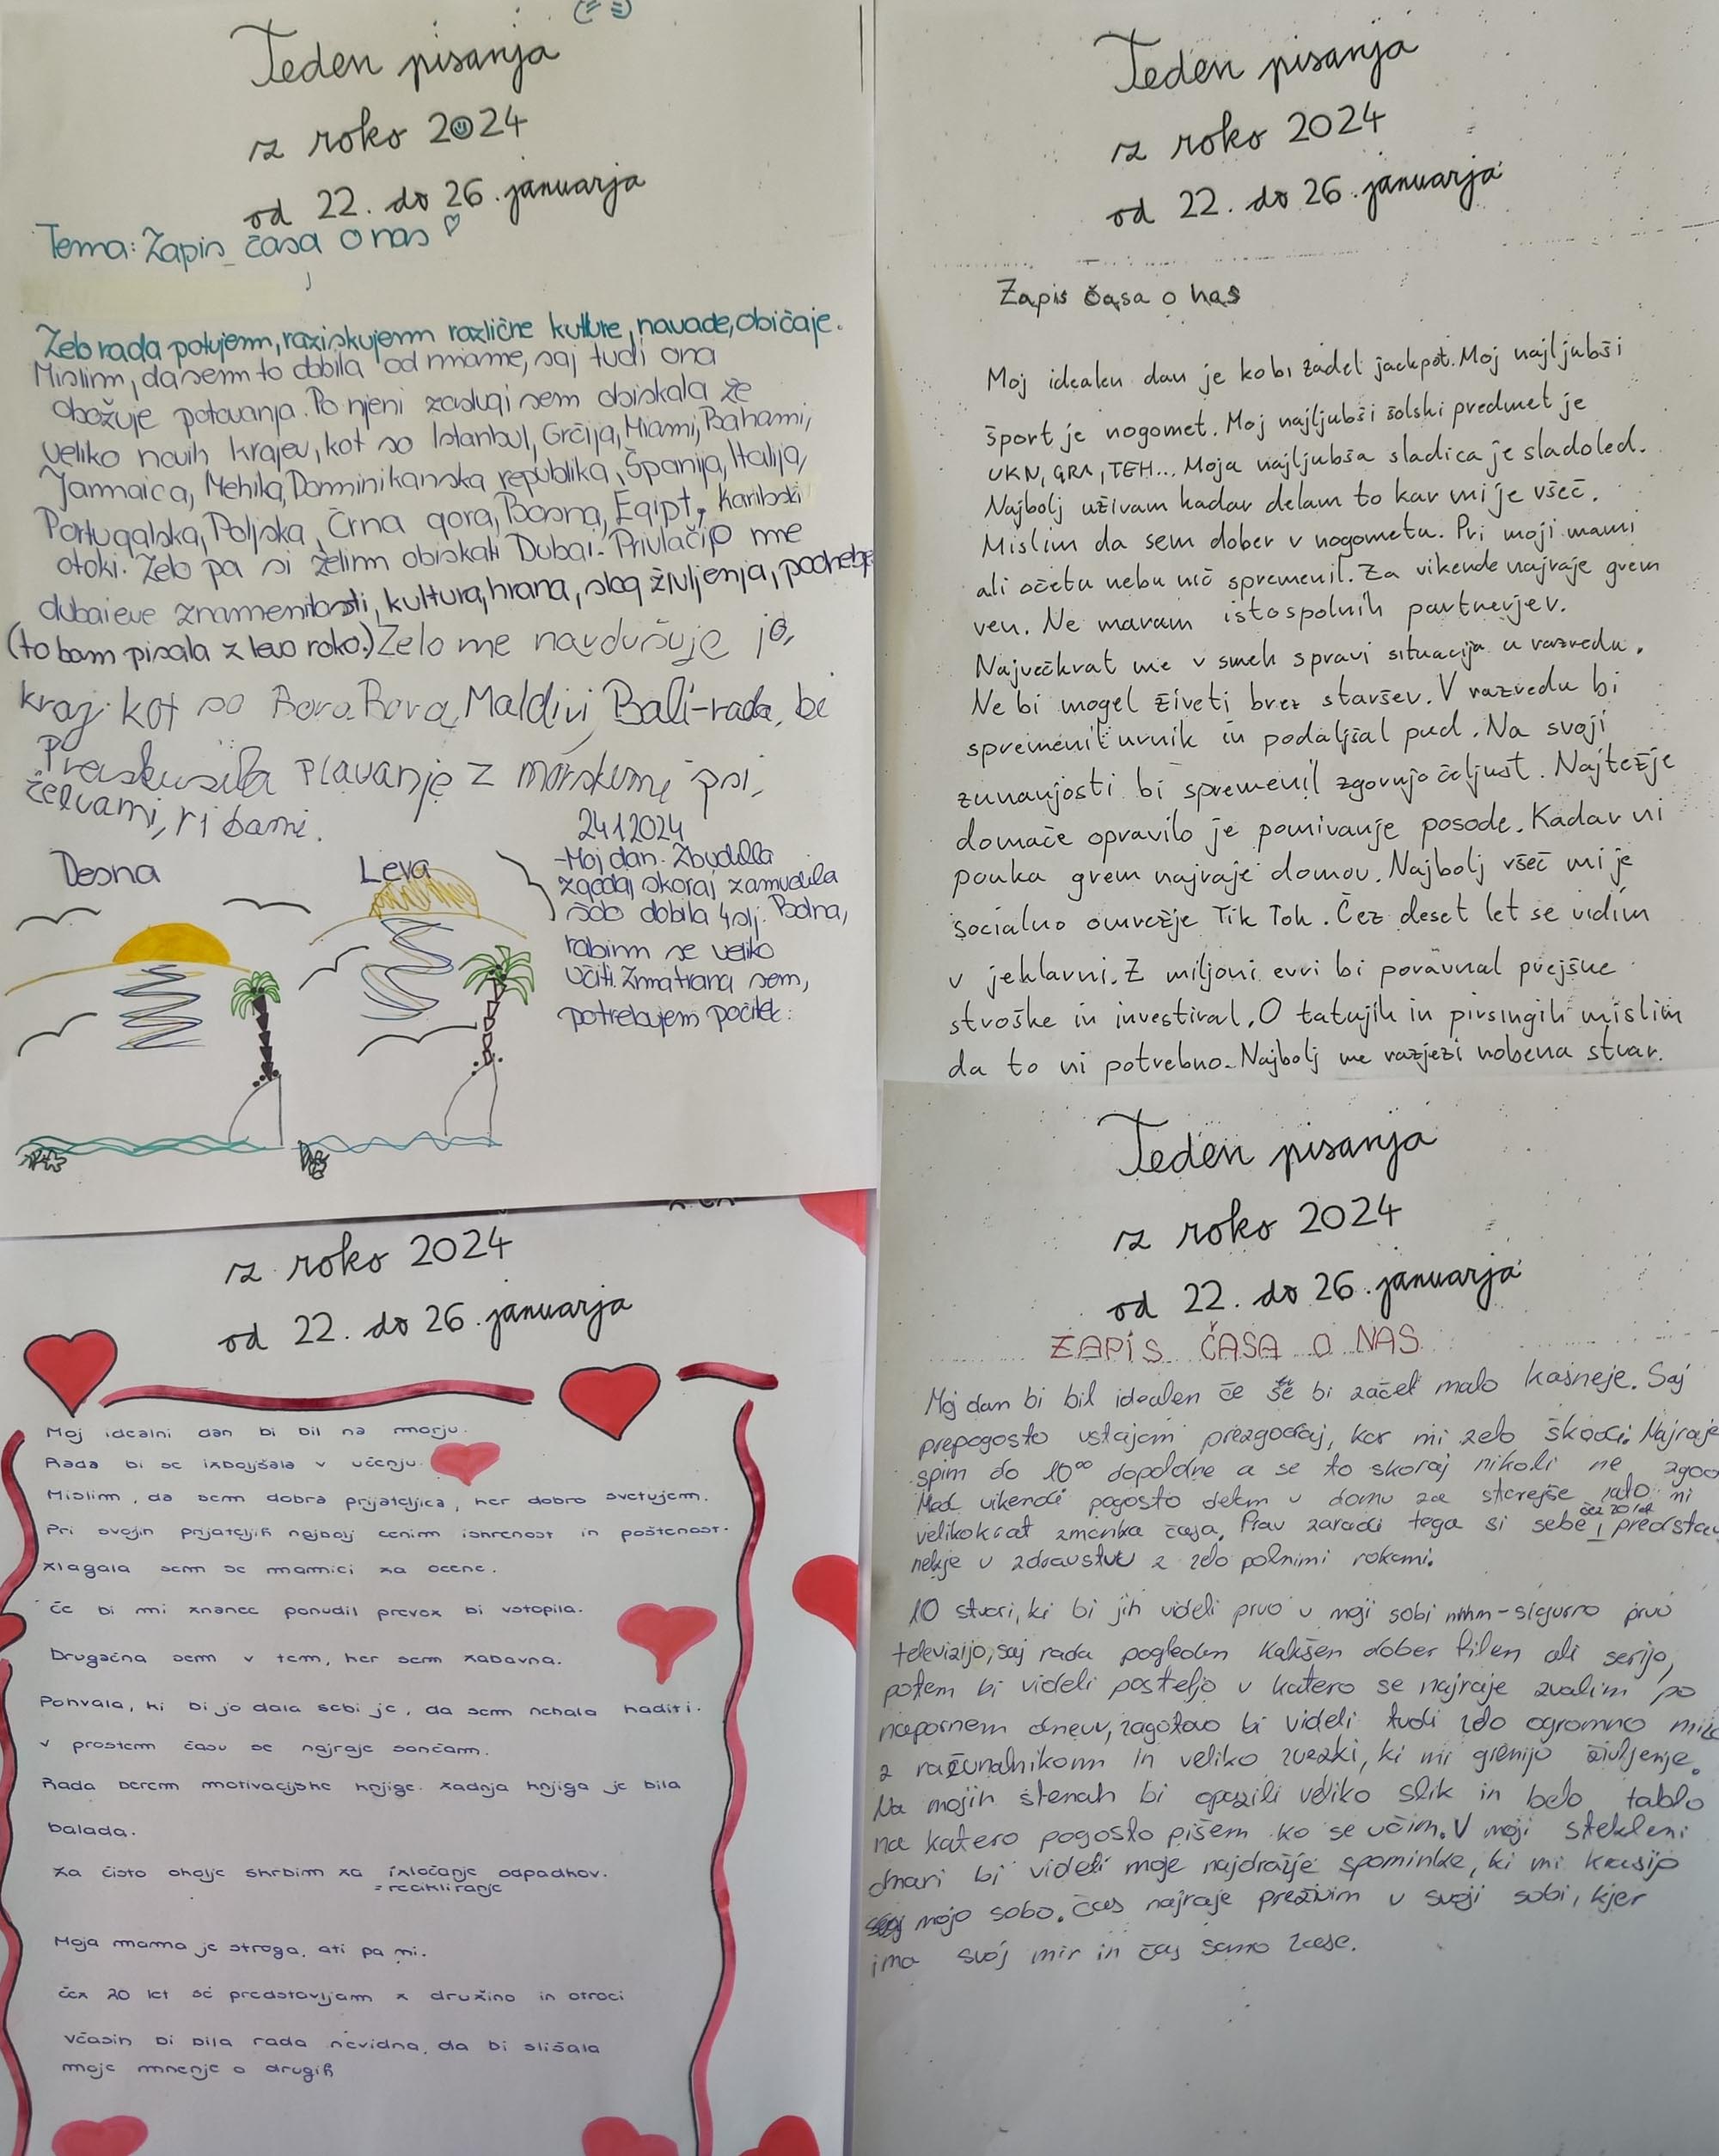 Teden pisanja
z roko 2024
od 22. do 26. januarja
Tema: Zapis časa o nas
Zelo rada potujem, raziskujem različne kulture, navade, običaje.
Mislim, da sem to dobila od mame, saj tudi ona
obožuje potovanja. Po njeni zaslugi sem obiskala že
veliko novih krajev, kot so Istanbul, Grčija, Miami, Bahami,
Jamaica, Mehika, Dominikanska republika, Španija, Italija,
Portugalska, Poljska, Črna gora, Bosna, Egipt, Karibski
otoki. Zelo pa si želim obiskati Dubai. Privlačijo me
dubaieve znamenitosti, kultura, hrana, slog življenja,
(to bom pisala z levo roko.) Zelo me navdušuje jo,
kraj kot so Bora Bora, Maldivi, Bali-rada bi
Preiskusila plavanje z morskimi psi,
želvami, ribami.
Desna
Leva
24.1.2024
-Moj dan. Zbudila
zgodaj skoraj zamudila
šolo dobila 4 slj. Bolna,
rabim se veliko
učiti. Zmatrana sem,
potrebujem počitek.
Teden pisanja
z roko 2024
od 22. do 26. januarja
Zapis časa o nas
Moj idealen dan je ko bi zadel jackpot. Moj najljubši
šport je nogomet. Moj najljubši šolski predmet je
UKN, GRA, TEH... Moja najljubša sladica je sladoled.
Najbolj uživam kadar delam to kar mi je všeč.
Mislim da sem dober v nogometu. Pri moji mami
ali očetu nebu nič spremenil. Za vikende najraje grem
ven. Ne maram istospolnih partnerjev.
Največkrat me v smeh spravi situacija u razredu.
Ne bi mogel živeti brez staršev. V razredu bi
spremenil urnik in podaljšal pud. Na svoji
zunanjosti bi spremenil zgornjo čeljust. Najtežje
domače opravilo je pomivanje posode. Kadar ni
pouka grem najraje domov. Najbolj všeč mi je
socialno omrežje Tik Tok. Čez deset let se vidim
v jeklarni. Z miljoni evri bi poravnal prejšne
stroške in investiral. O tatujih in pirsingih mislim
da to ni potrebno. Najbolj me razjezi nobena stvar.
z roko 2024
od 22. do 26. januarja
Moj idealni dan bi bil na morju.
Rada bi se izboljšala v učenju.
Mislim, da sem dobra prijateljica, ker dobro svetujem.
Pri svojih prijateljih najbolj cenim iskrenost in poštenost.
Zlagala sem se mamici za ocene.
Če bi mi znanec ponudil prevoz bi vstopila.
Drugačna sem v tem, ker sem zabavna.
Pohvala, ki bi jo dala sebi je, da sem nehala kaditi.
V prostem času se najraje sončam.
Rada berem motivacijske knjige. Zadnja knjiga je bila
balada.
Za čisto okolje skrbim za izločanje odpadkov.
= recikliranje
Moja mama je stroga, ati pa ni.
Čez 20 let se predstavljam z družino in otroci
Včasih bi bila rada nevidna, da bi slišala
moje mnenje o drugih
Teden pisanja
z roko 2024
od 22. do 26. januarja
ZAPIS ČASA O NAS
Moj dan bi bil idealen če še bi začel malo kasneje. Saj
prepogosto ustajam prezgodaj, kar mi zelo škodi. Najraje
spim do 10°° dopoldne a se to skoraj nikoli ne zgodi
Med vikendi pogosto delam v domu za starejše zato mi
velikokrat zmanjka časa. Prav zaradi tega si sebe čez 20 let
nekje v zdravstvu z zelo polnimi rokami.
10 stvari, ki bi jih videli prvo v moji sobi mhm-sigurno prvo
televizijo, saj rada pogledam kakšen dober filem ali serijo,
potem bi videli posteljo v katero se najraje zvalim po
napornem dnevu, zagotovo bi videli tudi zelo ogromno mizo
z računalnikom in veliko zvezki, ki mi grenijo življenje.
Na mojih stenah bi opazili veliko slik in belo tablo
na katero pogosto pišem ko se učim. V moji stekleni
omari bi videli moje najdražje spominke, ki mi krasijo
mojo sobo. Čas najraje preživim v svoji sobi, kjer
ima svoj mir in čas samo zase.